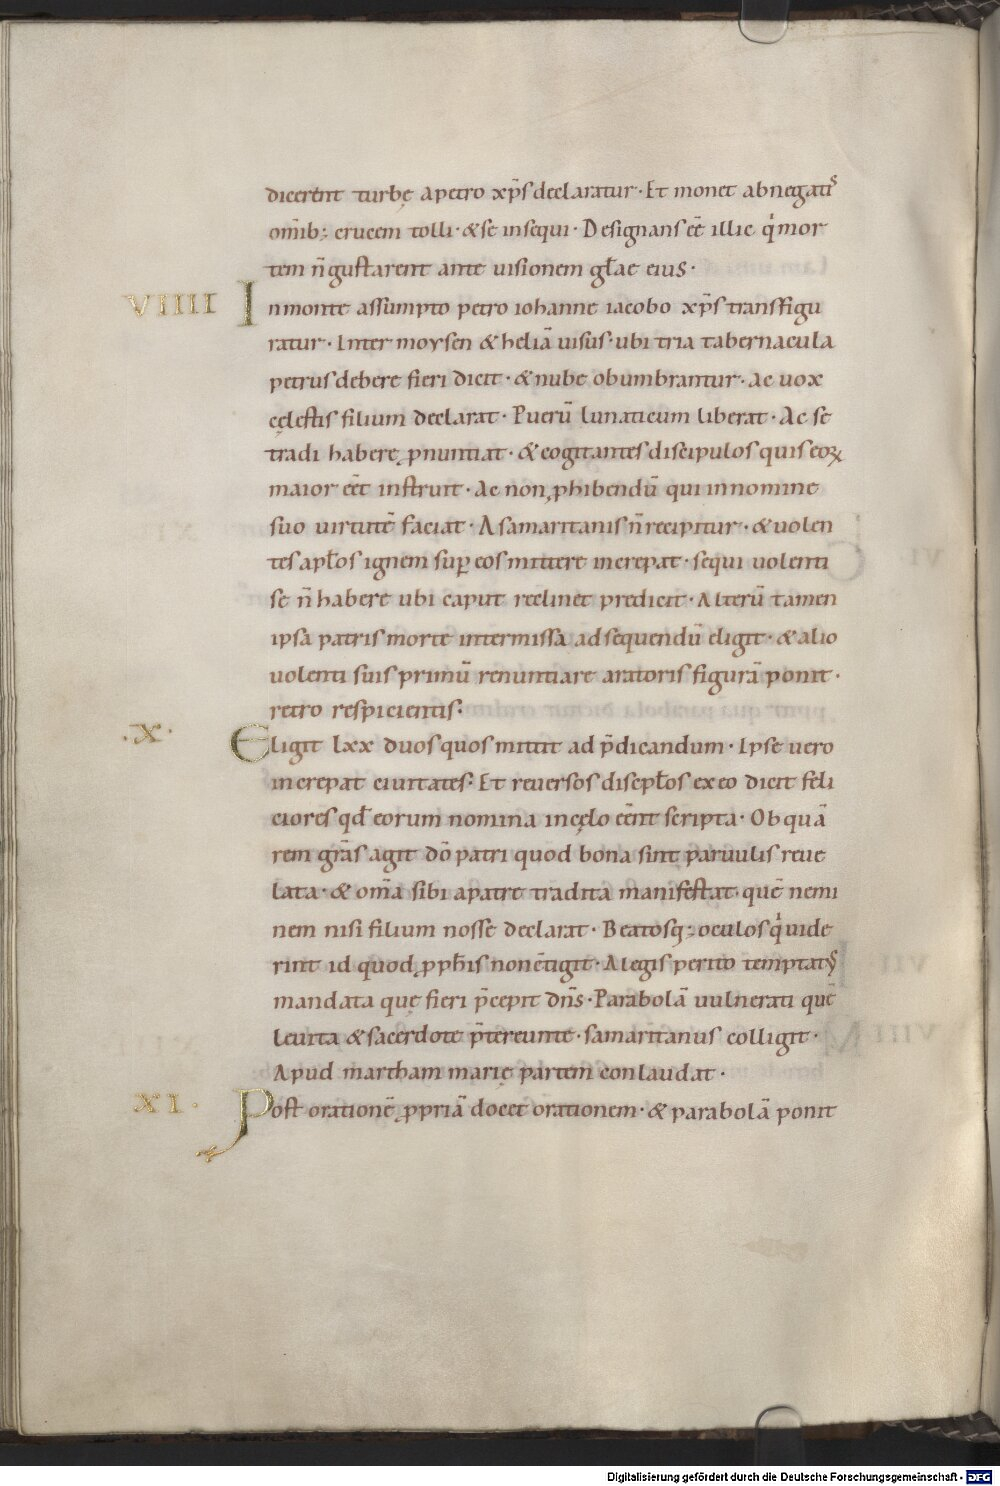 dicerent turbę apetro xp̄s declaratur · Et monet abnegatiˢ
om̄ib; crucem tolli · & se insequi · Designans eē illic qͥ mor
tem n̄ gustarent ante uisionem gl̄ae eius ·
VIIII In monte assumpto petro iohanne iacobo xp̄s transfigu
ratur · Inter moysen & heliā uisus · ubi tria tabernacula
petrus debere fieri dicit · & nube obumbrantur · Ac uox
cęlestis filium declarat · Puerū lunaticum liberat · Ac se
tradi habere ꝓnuntiat · & cogitantes discipulos quis eoꝝ
maior eēt instruit · Ac non ꝓhibendū qui in nomine
suo uirtutē faciat · A samaritanis n̄ recipitur · & uolen
tes apl̄os ignem suꝑ eos mittere increpat · sequi uolenti
se n̄ habere ubi caput reclinet predicit · Alterū tamen
ipsa patris morte intermissa ad sequendū eligit · & alio
uolenti suis primū renuntiare aratoris figurā ponit ·
retro respicientis ·
· X · Eligit lxx duos quos mittit ad p̄dicandum · Ipse uero
increpat ciuitates · Et reuersos discipl̄os ex eo dicit feli
ciores qd̄ eorum nomina in cęlo eēnt scripta · Ob quā
rem grās agit dō patri quod bona sint paruulis reue
lata · & om̄a sibi a patre tradita manifestat · quē nemi
nem nisi filium nosse declarat · Beatosq; oculos qͥ uide
rint id quod ꝓph̄is non ētigit · A legis perito temptatꝰ
mandata quę fieri p̄cepit dn̄s · Parabolā uulnerati quē
leuita & sacerdote p̄tereunte · samaritanus colligit ·
Apud martham marię partem conlaudat ·
XI · Post orationē ꝓpriā docet orationem · & parabolā ponit
Digitalisierung gefördert durch die Deutsche Forschungsgemeinschaft - DFG